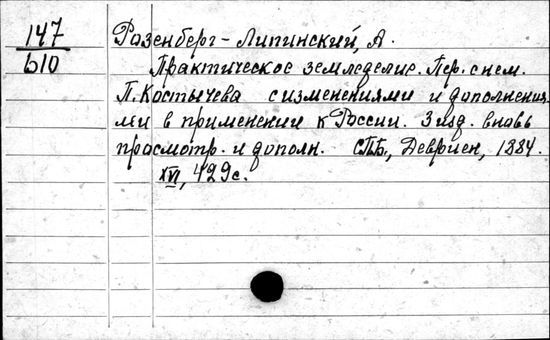 147
610
Розенберг-Липинский, А.
Практическое земледелие. Пер. с нем.
П. Костычева с изменениями и дополнения
ми в применении к России. 3 изд. вновь
просмотр. и дополн. СПБ., Девриен, 1884.
XVI, 429 с.